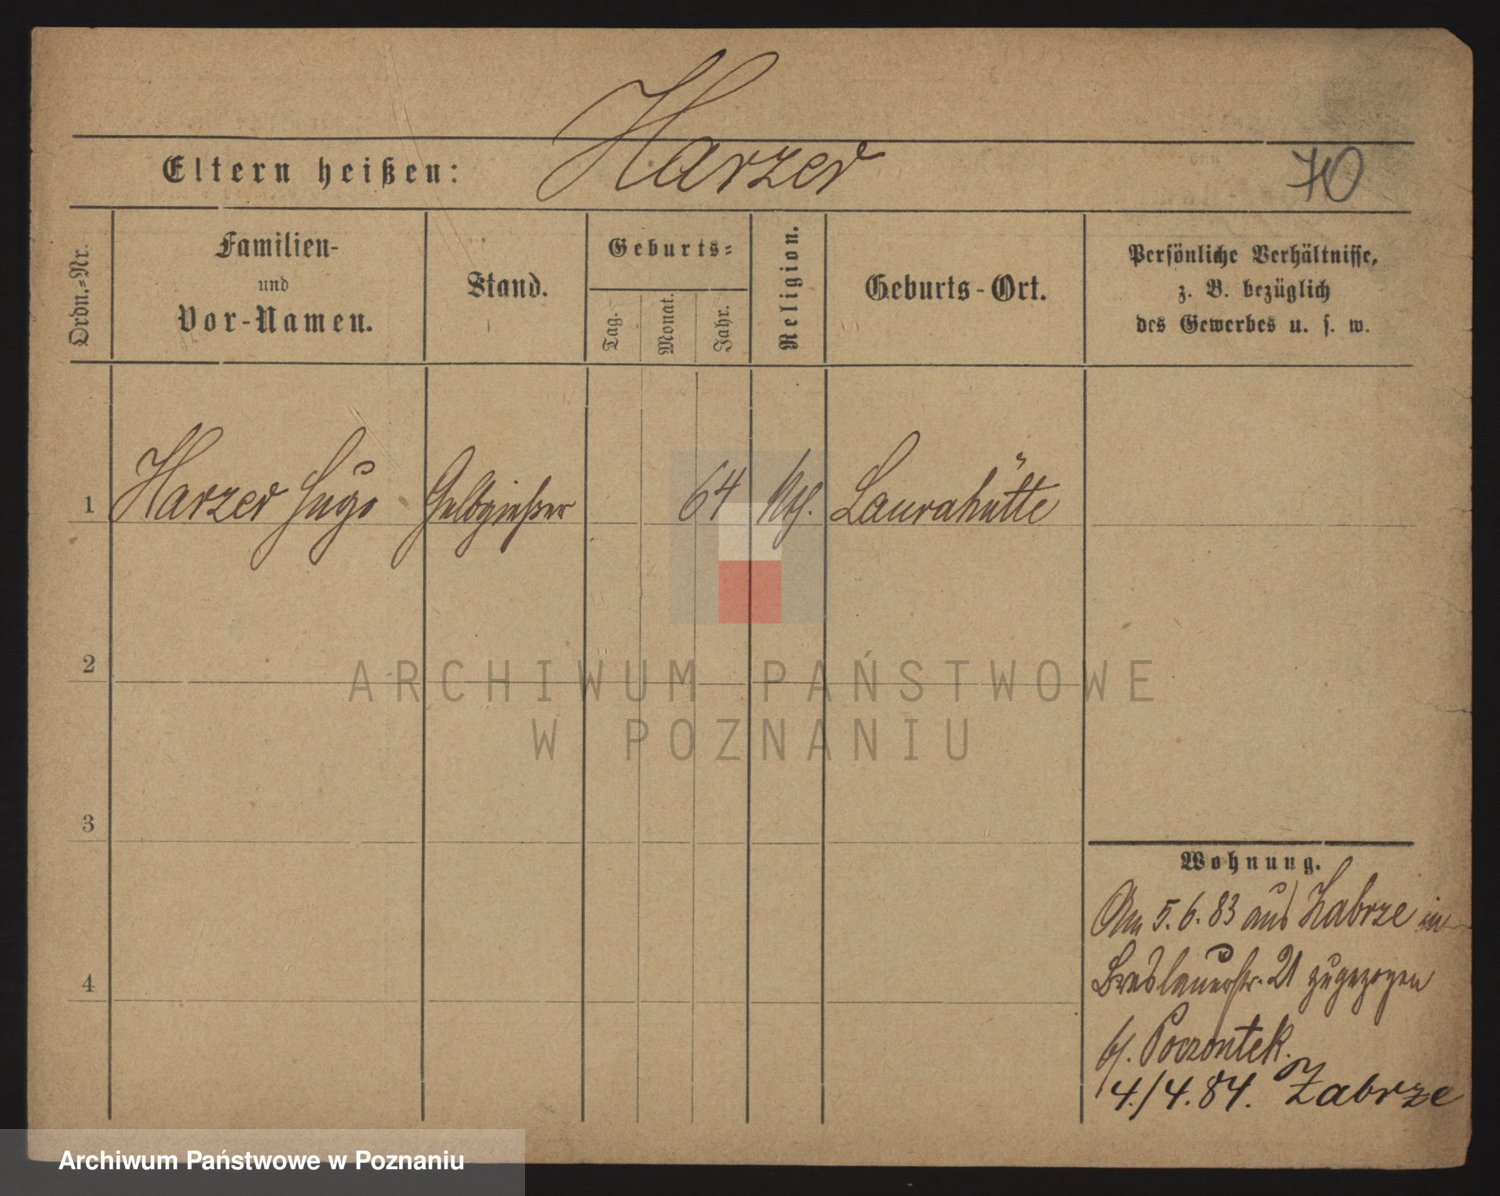 Harzer
Eltern heißen:
70
Ordn.-Nr.
Familien-
und
Vor-Namen.
Stand.
Geburts-
Tag.
Monat.
Jahr.
Religion.
Geburts-Ort.
Persönliche Verhältnisse,
z. B. bezüglich
des Gewerbes u. s. w.
1 Harzer Hugo Gelbgießer 64 Laurahütte
2
ARCHIWUM PAŃSTWOWE
W POZNANIU
3
Wohnung.
Am 5.6.83 aus Zabrze in
4
Breslauerstr. 21 zugezogen
b/. Poczontek.
4./4.84. Zabrze
Archiwum Państwowe w Poznaniu